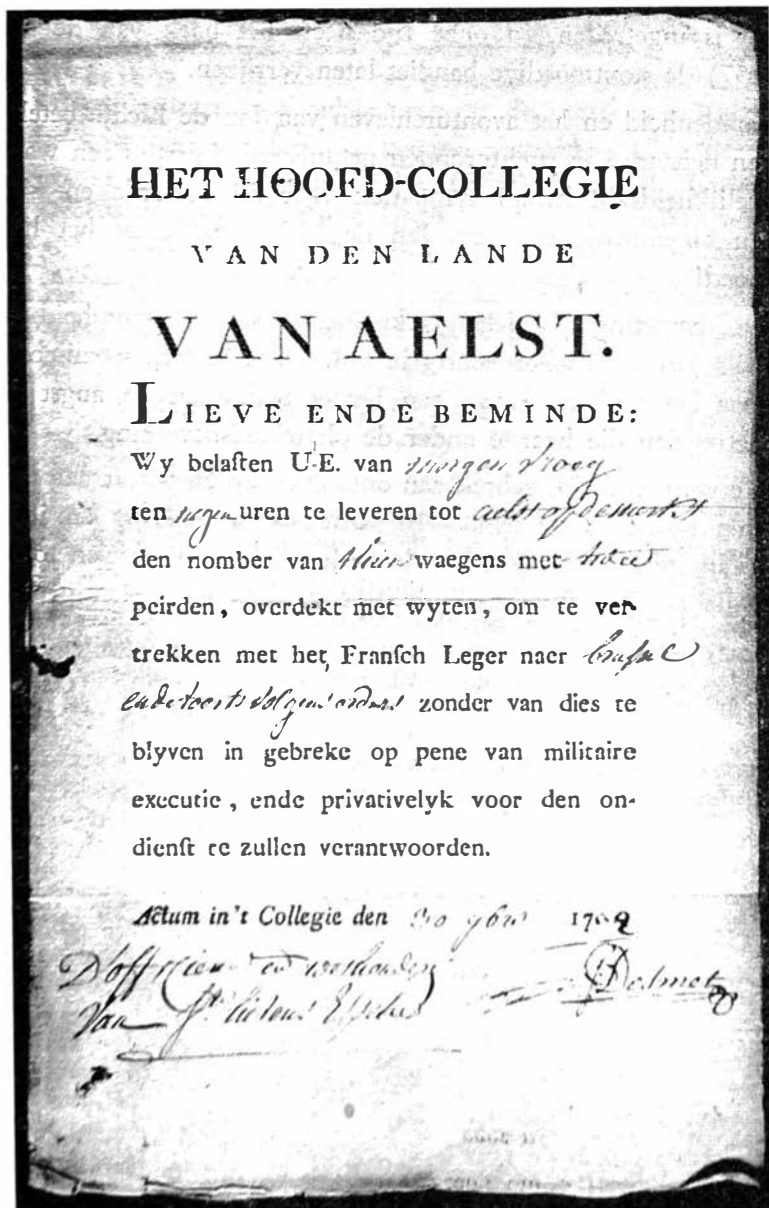 HET HOOFD-COLLEGIE
VAN DEN LANDE
VAN AELST.
LIEVE ENDE BEMINDE:
Wy belaſten U.E. van morgen vroeg
ten negen uren te leveren tot aelst op de marckt
den nomber van waegens met twee
peirden, overdekt met wyten, om te ver-
trekken met het Franſch Leger naer brussel
ende voorts volgens orders zonder van dies te
blyven in gebreke op pene van militaire
executie, ende privativelyk voor den on-
dienſt te zullen verantwoorden.
Actum in't Collegie den 9bre 179
D'officier en wethouders Desmet
van St lievens Essche